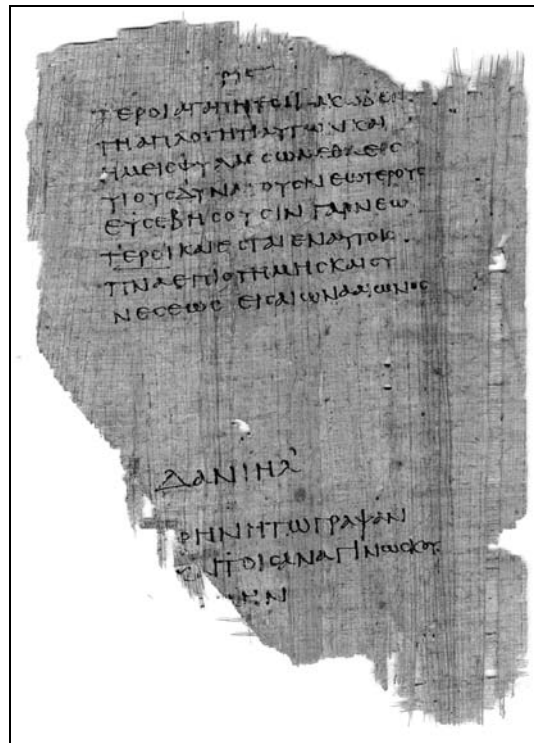 ΤΕΡΟΙΑΓΑΠΗΤΟΙΙΑΚΩΒΕΝ
ΤΗΑΠΛΟΤΗΤΙΑΥΤΩΝΚΑΙ
ΗΜΕΙϹΦΥΛΑϹϹΩΜΕΘΑΕΙϹ
ΥΙΟΥϹΔΥΝΑΤΟΥϹΝΕΩΤΕΡΟΥϹ
ΕΥϹΕΒΗϹΟΥϹΙΝ ΓΑΡΝΕΩ
ΤΕΡΟΙΚΑΙΕϹΤΑΙΕΝΑΥΤΟΙϹ
ΠΝΑΕΠΙϹΤΗΜΗϹΚΑΙϹΥ
ΝΕϹΕΩϹ ΕΙϹΑΙΩΝΑΑΙΩΝΟϹ
ΔΑΝΙΗΛ
ΡΗΝΗΤΩΓΡΑΨΑΝ
ΤΟΙϹΑΝΑΓΙΝΩϹΚΟΥ